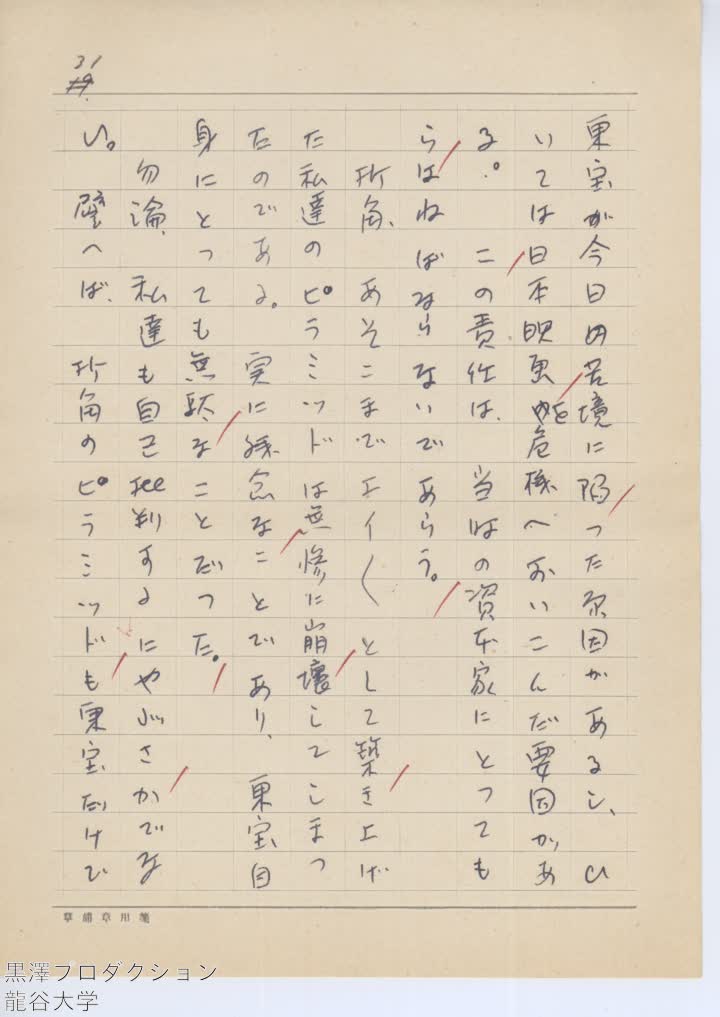 31
東宝が今日の苦境に陥った原因があるし、ひ
いては日本映画を危機へおいこんだ要因があ
る。この責任は、当時の資本家にとっても
らはねばならないであらう。
折角、あそこまでエイ〱として築き上げ
た私達のピラミッドは無慘に崩壊してしまっ
たのである。実に残念なことであり、東宝自
身にとっても無駄なことだった。
勿論、私達も自己批判するにやぶさかでな
い。譬へば、折角のピラミッドも東宝だけで
草浦草用箋
黒澤プロダクション
龍谷大学